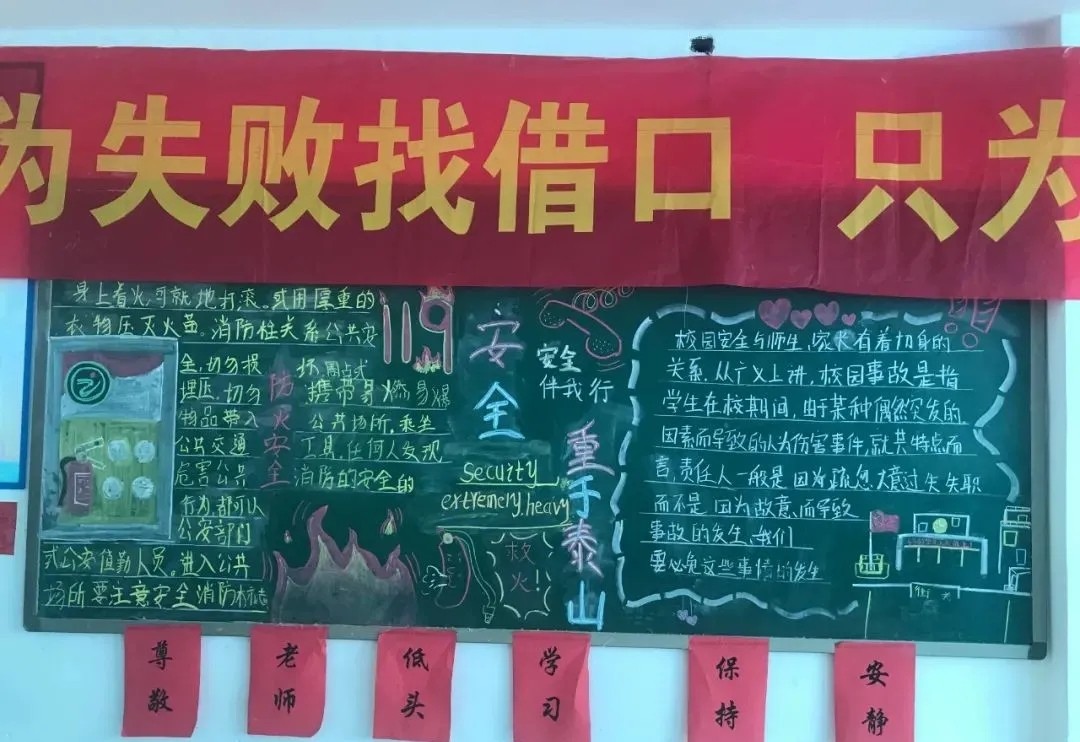 为失败找借口 只为
身上着火,可就地打滚。或用厚重的
衣物压灭火苗。消防性关系公共安
全,切勿损 坏、圈占式
埋压、切勿 携带易燃易爆
物品带入 公共场所,乘坐
公共交通 工具,任何人发现
危害公共 消防的安全的
行为,都可以
公安部门
式公安值勤人员。进入公共
场所要注意安全消防标志
防火安全
119
安全
重于泰山
安全
伴我行
secuity
extremery.heavy
救火!
校园安全与师生、家长有着切身的
关系.从广义上讲,校园事故是指
学生在校期间,由于某种偶然突发的
因素而导致的人为伤害事件,就其特点而
言,责任人一般是因为疏忽大意过失失职
而不是因为故意而导致
事故的发生、我们
要必免这些事情的发生
尊敬
老师
低头
学习
保持
安静